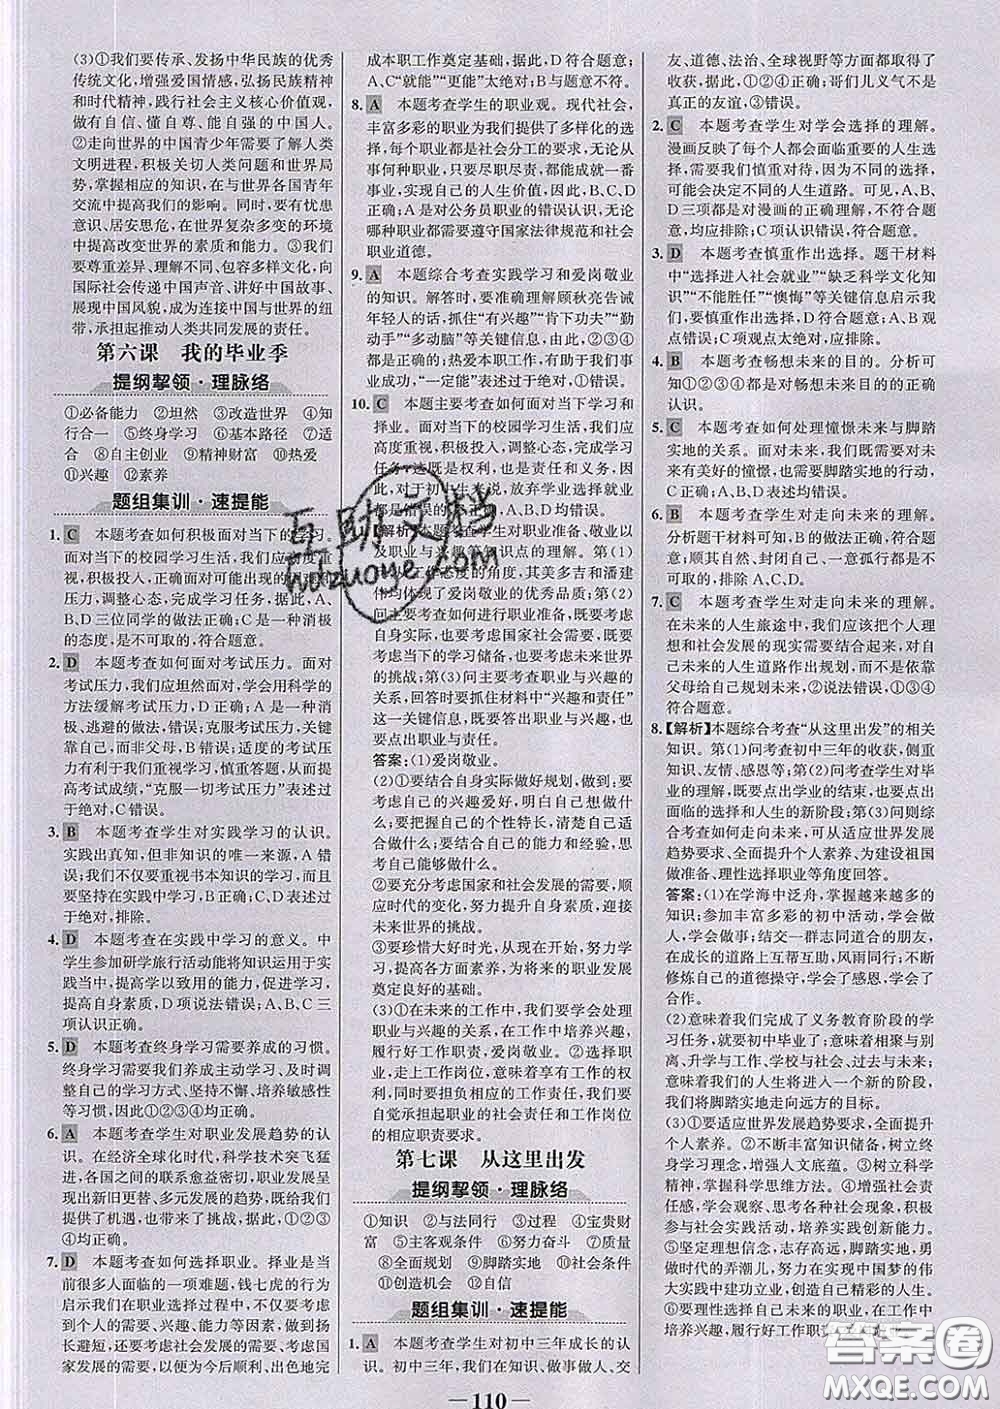 (3)①我们要传承、发扬中华民族的优秀
传统文化，增强爱国情感，弘扬民族精神
和时代精神，践行社会主义核心价值观，
做自信、懂自尊、能自强的中国人。
②走向世界的中国青少年需要了解人类
文明进程，积极关切人类问题和世界局
势，掌握相应的知识，在与世界各国青年
交流中提高我们的影响。同时，要有忧患
意识、居安思危，在世界复杂多变的环境
中提高改变世界的素质和能力。③我们
要尊重差异、理解不同、包容多样文化，向
国际社会传递中国声音、讲好中国故事、
展现中国风貌，成为连接中国与世界的纽
带，承担起推动人类共同发展的责任。
第六课　我的毕业季
提纲挈领·理脉络
①必备能力　②坦然　③改造世界　④知
行合一　⑤终身学习　⑥基本路径　⑦适
合　⑧自主创业　⑨精神财富　⑩热爱
⑪兴趣　⑫素养
题组集训·速提能
1. C　本题考查如何积极面对当下的学习。
面对当下的校园学习生活，我们应高度重
视，积极投入，正确面对可能出现的压力，
调整心态，完成学习任务。据此，A、B、
D三位同学的做法正确；C是消极的
态度，是不可取的，符合题意。
2. D　本题考查如何面对考试压力。面对
考试压力，我们应坦然面对，学会用科学的
方法缓解考试压力，D正确；A是消极
的、逃避的做法，错误；克服考试压力，关键
靠自己，而非父母，B错误；适度的考试压
力有于我们重视学习，慎重答题，从而提
高考试成绩，“克服一切考试压力”表述
过于绝对，C错误。
3. B　本题考查学生对实践学习的认识。
实践出真知，但非知识的唯一来源，A错
误；我们不仅要重视书本知识的学习，而且
要坚持在实践中学习，B正确；C、D表述过
于绝对，排除。
4. D　本题考查在实践中学习的意义。中
学生参加研学旅行活动能将知识运用于实
践当中，提高了实践的能力，促进学习，提
高自身素质，D项说法错误；A、B、C三
项认识正确。
5. D　本题考查终身学习需要养成的习惯。
终身学习需要我们养成主动学习、及时调
整自己的学习方式、坚持不懈、培养敏感性
等习惯，因此①②③④均正确。
6. A　本题考查学生对职业发展趋势的认
识。在经济全球化时代，科学技术突飞猛
进，各国之间的联系愈益密切，职业发展呈
现出新旧更替、多元发展的趋势，既给我们
提供了机遇，也带来了挑战，据此，①②③
④均正确。
7. D　本题考查如何选择职业。择业是当
前很多人面临的一项难题，钱七虎的行为
启示我们在职业选择过程中，不仅要考虑
到个人的需要、个人的天赋，做到对自身扬
长避短，长期打算，同时也要考虑到社会和
国家发展的需要，以便为今后顺利、出色地完
成本职工作奠定基础，据此，D符合题意；
A、C“就能”“更能”太绝对；B与题意不符。
8. A　本题考查学生的职业观。现代社会，
丰富多彩的职业为我们提供了多样化的选
择，每个职业都是社会分工的需要，无论从
事何种职业，只要尽职尽责，都能成就一番
事业，实现自己的人生价值，因此，B、C、D
正确；A是对公务员职业的错误认识，无论
哪种职业都需要遵守国家法律规范和社会
职业道德。
9. A　本题综合考查实践学习和爱岗敬业
的知识。解答时，要准确理解顾秋亮告诫
年轻人的话，抓住“有兴趣”“肯下功夫”“勤
动手”“多动脑”等关键信息，由此可见，②③④
都是正确的；热爱本职工作，有助于我们事
业成功，“一定能”表述过于绝对，①错误。
10. C　本题主要考查如何面对当下学习和
择业。面对当下的校园学习生活，我们应
高度重视，积极投入，调整心态，完成学习
任务；这既是权利，也是责任和义务。因
此，对于初中生来说，放弃学业选择就业
都是错误的，C正确，A、B、D均错误。
解析　本题考查学生对职业准备、敬业以
及职业与兴趣等知识点的理解。第(1)
工作态度的角度，其美多吉和潘建
伟均体现了爱岗敬业的优秀品质；第(2)
问主要考查如何进行职业准备，既要考虑
自身实际，也要考虑国家社会需要，既要考虑
当下的学习储备，也要考虑未来世界
的挑战；第(3)问主要考查职业与兴趣的
关系，回答时要抓住材料中“兴趣和责任”
这一关键信息，既要答出职业与兴趣，也要
点出职业与责任。
答案：(1)爱岗敬业。
(2)①要结合自身实际做好规划，做到
了解自己的兴趣爱好，明白自己想要做什
么；把握自己的个性特长，清楚自己适合
适合做什么；要立足自己的能力和经验，思
考自己能够做什么。
②要充分考虑国家和社会发展的需要，顺应
时代的变化，努力提升自身素质，迎接
未来世界的挑战。
③要珍惜大好时光，从现在开始，努力学
习，提高各方面素养，为将来的职业发展
奠定良好的基础。
(3)①在未来的工作中，我们要学会处理
职业与兴趣的关系，在工作中培养兴趣，
履行好工作职责，爱岗敬业。②面对就
业，走上工作岗位，我们享有相应的工作权
利，同时要担负相应的工作责任，我们要
自觉承担起职业的社会责任和工作岗位
的相应职责要求。
第七课　从这里出发
提纲挈领·理脉络
①知识　②与法同行　③过程　④宝贵财
富　⑤主客观条件　⑥努力奋斗　⑦质量
⑧全面规划　⑨脚踏实地　⑩社会条件
⑪创造机会　⑫自信
题组集训·速提能
1. A　本题考查学生对初中三年成长的认
识。初中三年，我们在知识、做事做人、交
友、道德、法治、全球视野等方面都取得了
收获，据此，①②④正确；哥们儿义气不是
真正的友谊，③错误。
2. C　本题考查学生对学会选择的理解。
漫画反映了每个人都会面临重要的人生选
择，因此我们要慎重对待，因为不同的选择，可
能会决定不同的人生道路。可见，A、B、
D三项都是对漫画的正确理解，不符合题
意，均应排除；C项认识错误，符合题意。
3. D　本题考查慎重作出选择。题干材料
中“选择进入社会就业”“缺乏科学文化知
识”“不能胜任”“懊悔”等关键信息启示我
们，要慎重作出选择，D正确；A、B观
点错误；C项观点太绝对，应排除。
4. B　本题考查畅想未来的目的。分析可
知①②③④都是对畅想未来目的的正确
认识。
5. C　本题考查如何处理憧憬未来与脚踏
实地的关系。面对未来，我们既要对未
来有美好的憧憬，也要有脚踏实地的行动，
据此，C正确；A、B、D项均错误。
6. B　本题考查学生对走向未来的理解。
分析题干材料可知，B的做法正确，符合
题意；顺其自然、封闭自己、一意孤行都是不
可取的，排除A、C、D。
7. C　本题考查学生对走向未来的理解。
在未来的人生旅途中，我们应该把个人理
想和社会发展的现实需要结合起来，对自
己未来的人生道路作出规划，而不是依靠
父母给自己规划未来；②说法错误，①③④
符合题意。
8.【解析】本题综合考查“从这里出发”的相关
知识。第(1)问考查初中三年的收获，侧重
知识、友情、感恩等；第(2)问考查学生对毕业
的理解，既要点出学业的结束，也要点出
面临的选择和人生的新阶段；第(3)问则综
合考查如何走向未来，可从适应世界发展
趋势要求、全面提升个人素养、为建设祖国
做准备、理性选择职业等角度回答。
答案：(1)在学海中泛舟，掌握越来越多的
知识；参加丰富多彩的初中活动，学会做
人，学会做事；结交一群志同道合的朋友，
在成长的道路上互帮互助，风雨同行；不断
修炼自己的道德操守，学会了感恩，学会了
合作。
(2)意味着我们完成了义务教育阶段的学
习任务，就要初中毕业了；意味着相聚与别
离、升学与工作、学校与社会、过去与未来；
意味着我们的人生将进入一个新的阶段，
我们将脚踏实地走向远方的目标。
(3)①要适应世界发展趋势要求，全面提升
个人素养。②不断丰富知识储备，树立终
身学习的理念，增强人文底蕴。③培养科学
精神，掌握科学思维方法。④增强社会责
任，学会观察、思考各种社会现象，积极参
与社会实践活动，培养实践创新能力。
⑤坚定理想信念，志存高远，脚踏实地，勇
做时代的弄潮儿，在实现中国梦的伟
大实践中建设祖国，创造自己精彩的人生。
⑥要理性规划自己未来的职业，在工作中
培养兴趣，履行好工作职责
—110—
互助文档
huzuowe.com
答案圈
MXQE.COM